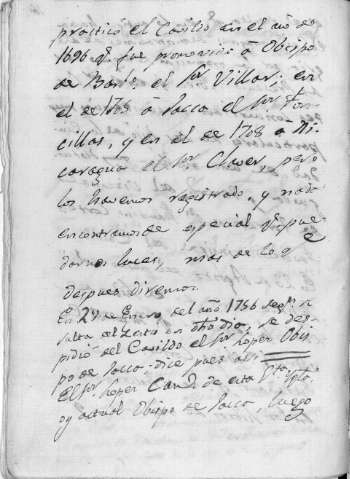 practicó el Casildo en el año de
1696 q. fue promovido à Obispo
de Barb. el Sor Villar; en
el de 1708 à Jacca el Sor Fon-
cillas, y en el de 1708 à Ni-
caragua el Sor Claver, pero
los havemos registrado, y nada
encontramos de especial q. pue
da dar luces, mas de lo q
despues diremos.
En 27 de Enero del año 1756 segn. re
sulta el acto en dho dia, se des-
pidió del Casildo el Sor Lopez Obis-
po de Jacca dice pues assi
El Sor Lopez Can. de esta Sta Ygla.
oy actual Obispo de Jacca, luego